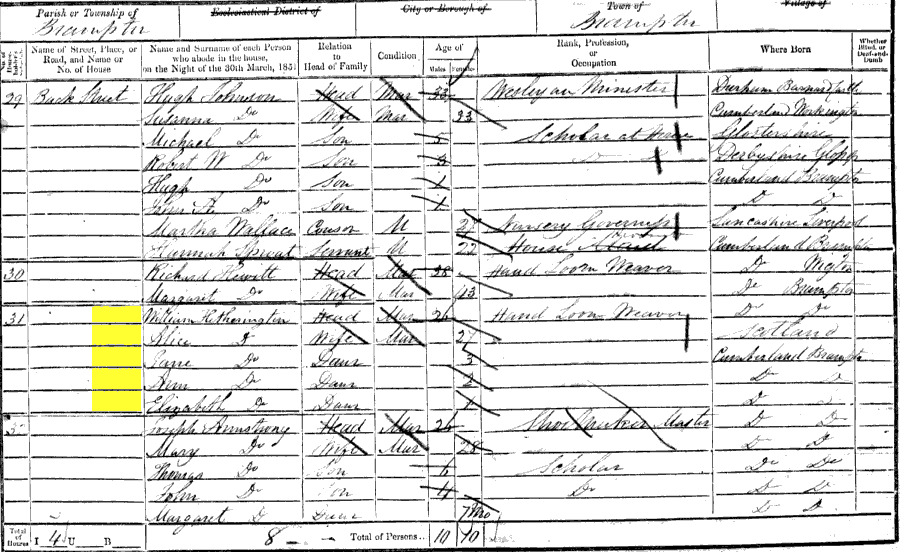 Parish or Township of Ecclesiastical District of City or Borough of Town of Village of
Brampton Brampton
No. of House- Name of Street, Place, or Road, and Name or No. of House Name and Surname of each Person who abode in the house, on the Night of the 30th March, 1851 Relation to Head of Family Condition Age of Males Females Rank, Profession, or Occupation Where Born Whether Blind, or Deaf-and-Dumb
29 Back Street Hugh Johnson Head Mar 33 Wesleyan Minister Durham Barnard Castle
Susanna Do Wife Mar 23 Cumberland Workington
Michael Do Son 5 Scholar at Home
Robert W Do Son 3 Derbyshire Glossop
Hugh Do Son 1 Cumberland Brampton
Do Son 1 D D
Martha Wallace Couson U 27 Nursery Governess Lancashire Liverpool
Hannah Servant U 22 House Cumberland Brampton
30 Richard Hewitt Head Mar 38 Hand Loom Weaver D
Margaret Do Wife Mar 43 Do Brampton
31 William Hetherington Head Mar 26 Hand Loom Weaver D D
Alice D Wife Mar 27 Scotland
Jane Do Daur 3 Cumberland Brampton
Ann Do Daur 2 D D
Elizabeth Do Daur 1 D D
32 Joseph Armstrong Head Mar 26 Shoe Maker Master D D
Mary Do Wife Mar 28 D D
Thomas Do Son 6 Scholar Do Do
John Do Son 4 Do D D
Margaret D Daur 7 Mo D D
Total of Houses I 4 U B 8 Total of Persons 10 10